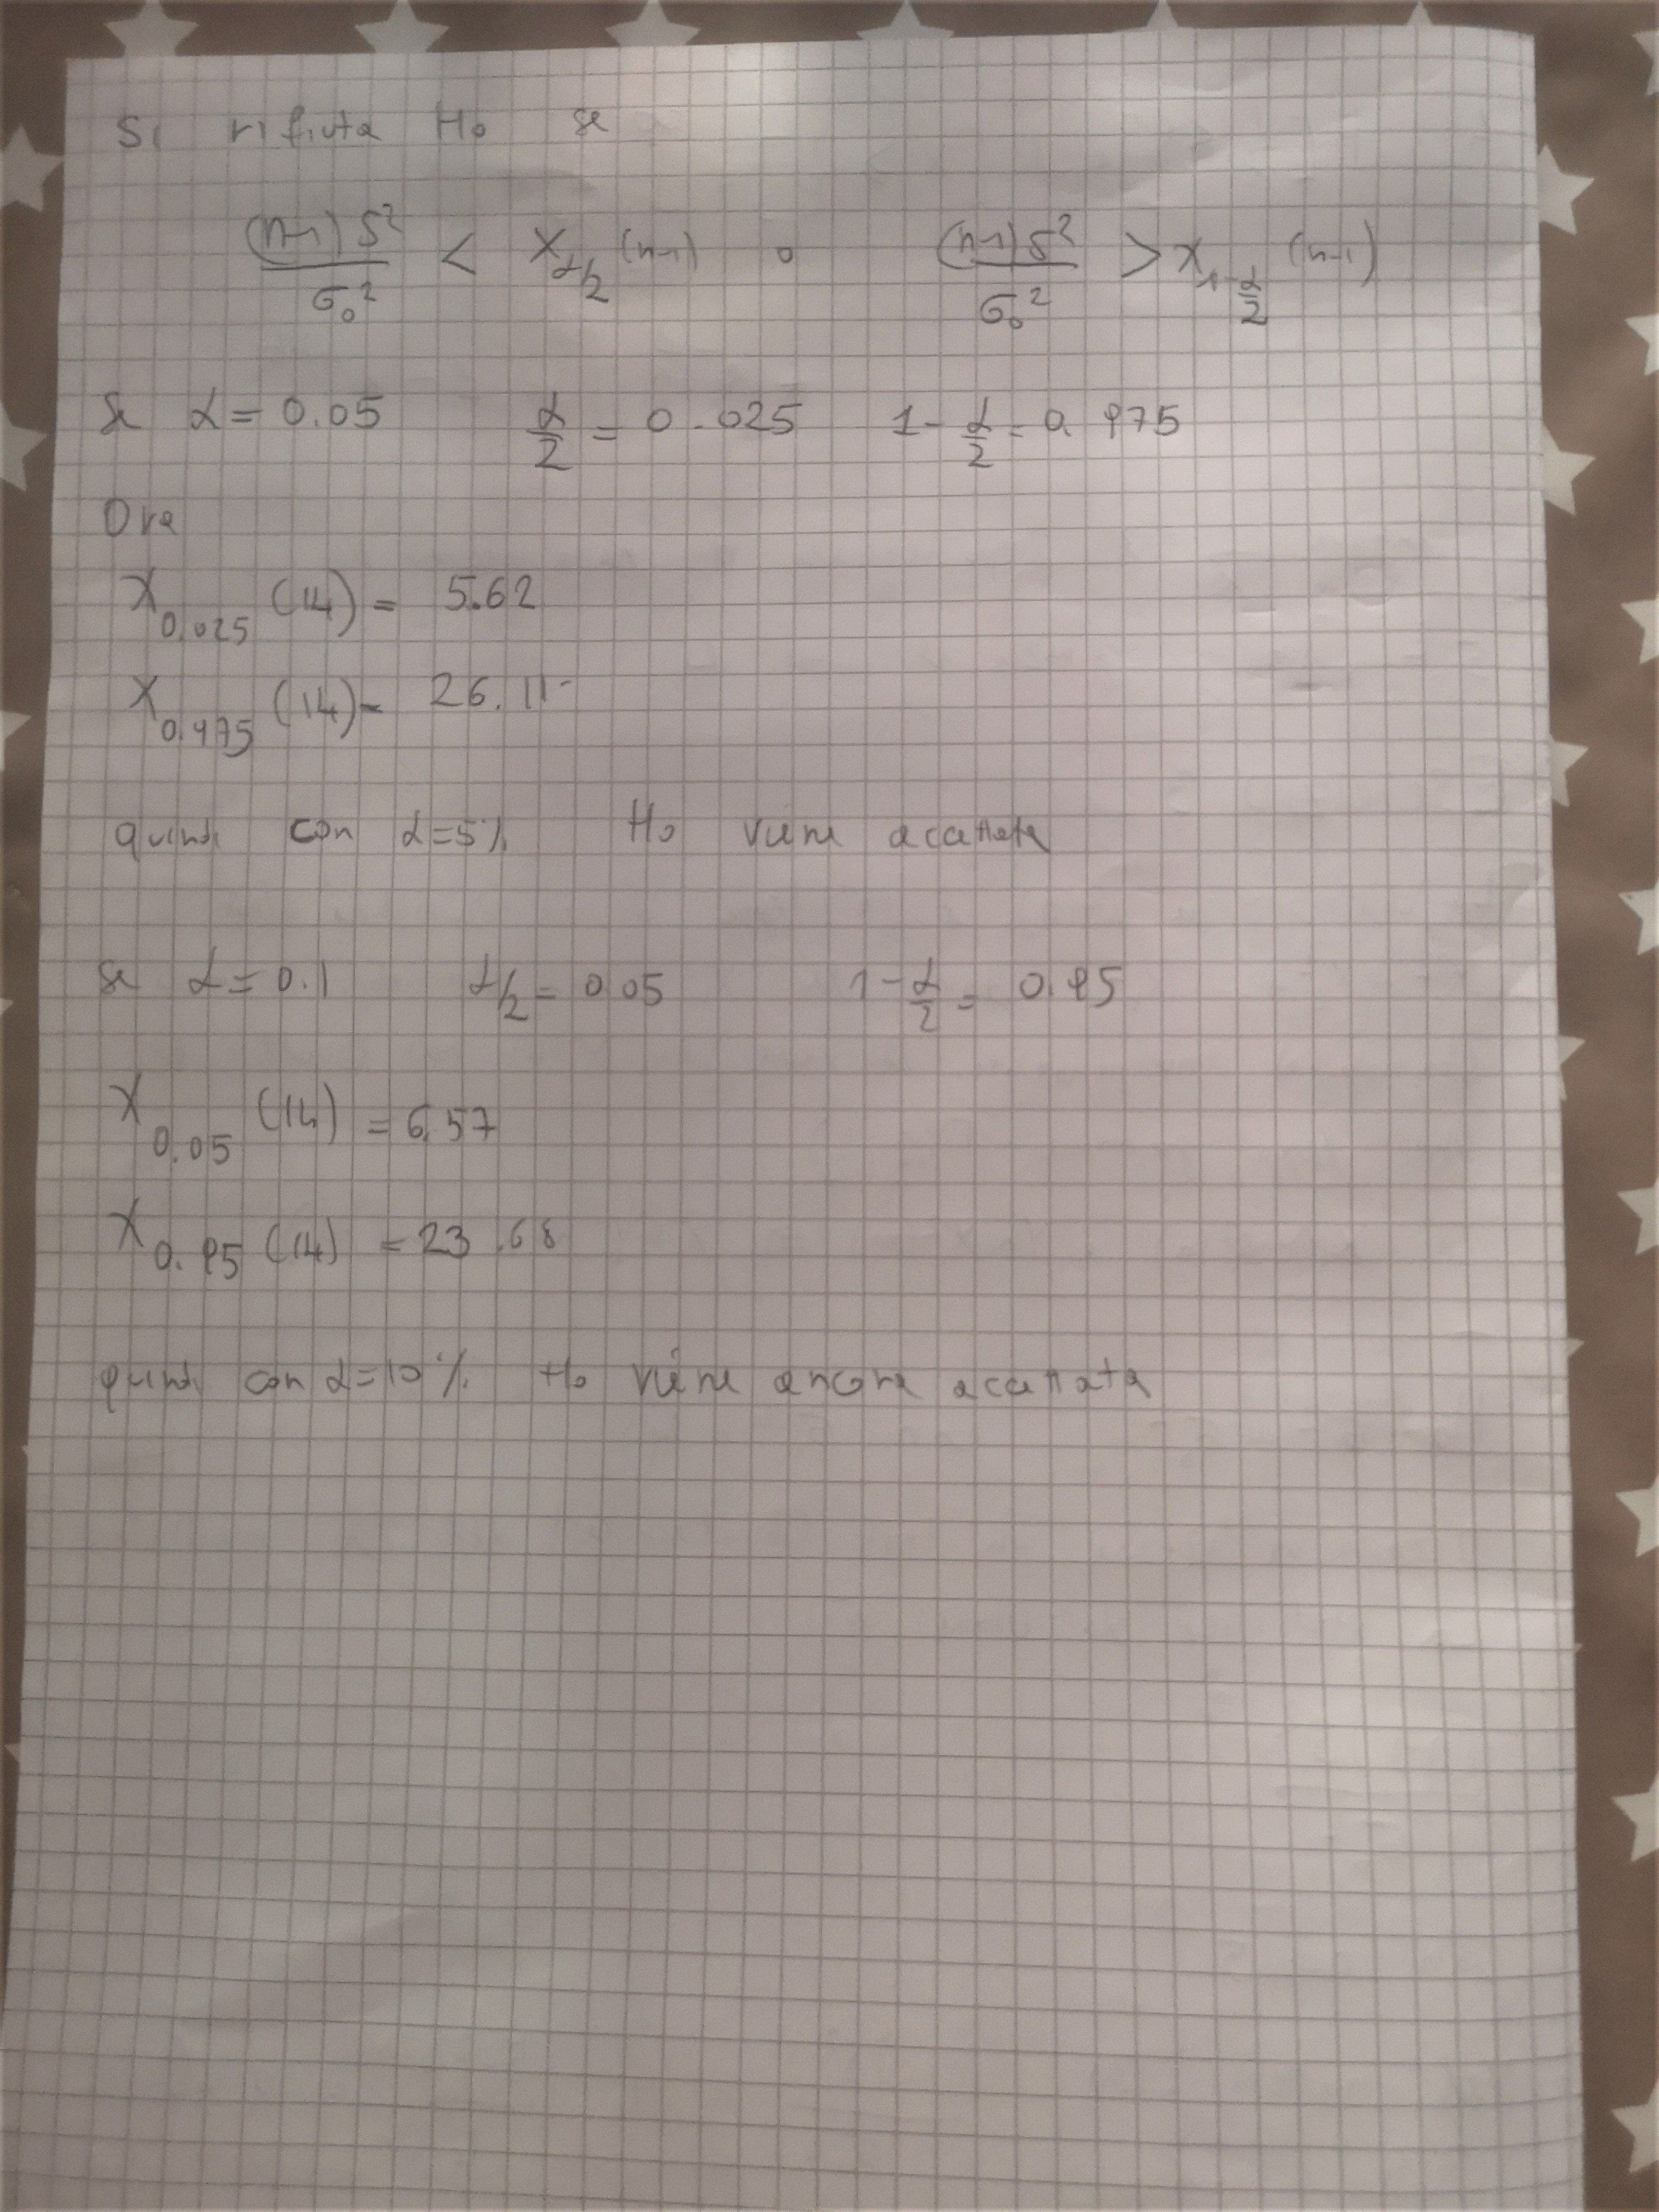 Si rifiuta H₀ se
(n-1)S²/σ₀² < X_α/2 (n-1) o (n-1)S²/σ₀² > X_1-α/2 (n-1)
Se α = 0.05 α/2 = 0.025 1-α/2 = 0.975
Ora
X_0.025 (14) = 5.62
X_0.975 (14) = 26.11
quindi con α=5% H₀ viene accettata
se α = 0.1 α/2 = 0.05 1-α/2 = 0.95
X_0.05 (14) = 6.57
X_0.95 (14) = 23.68
quindi con α=10% H₀ viene ancora accettata